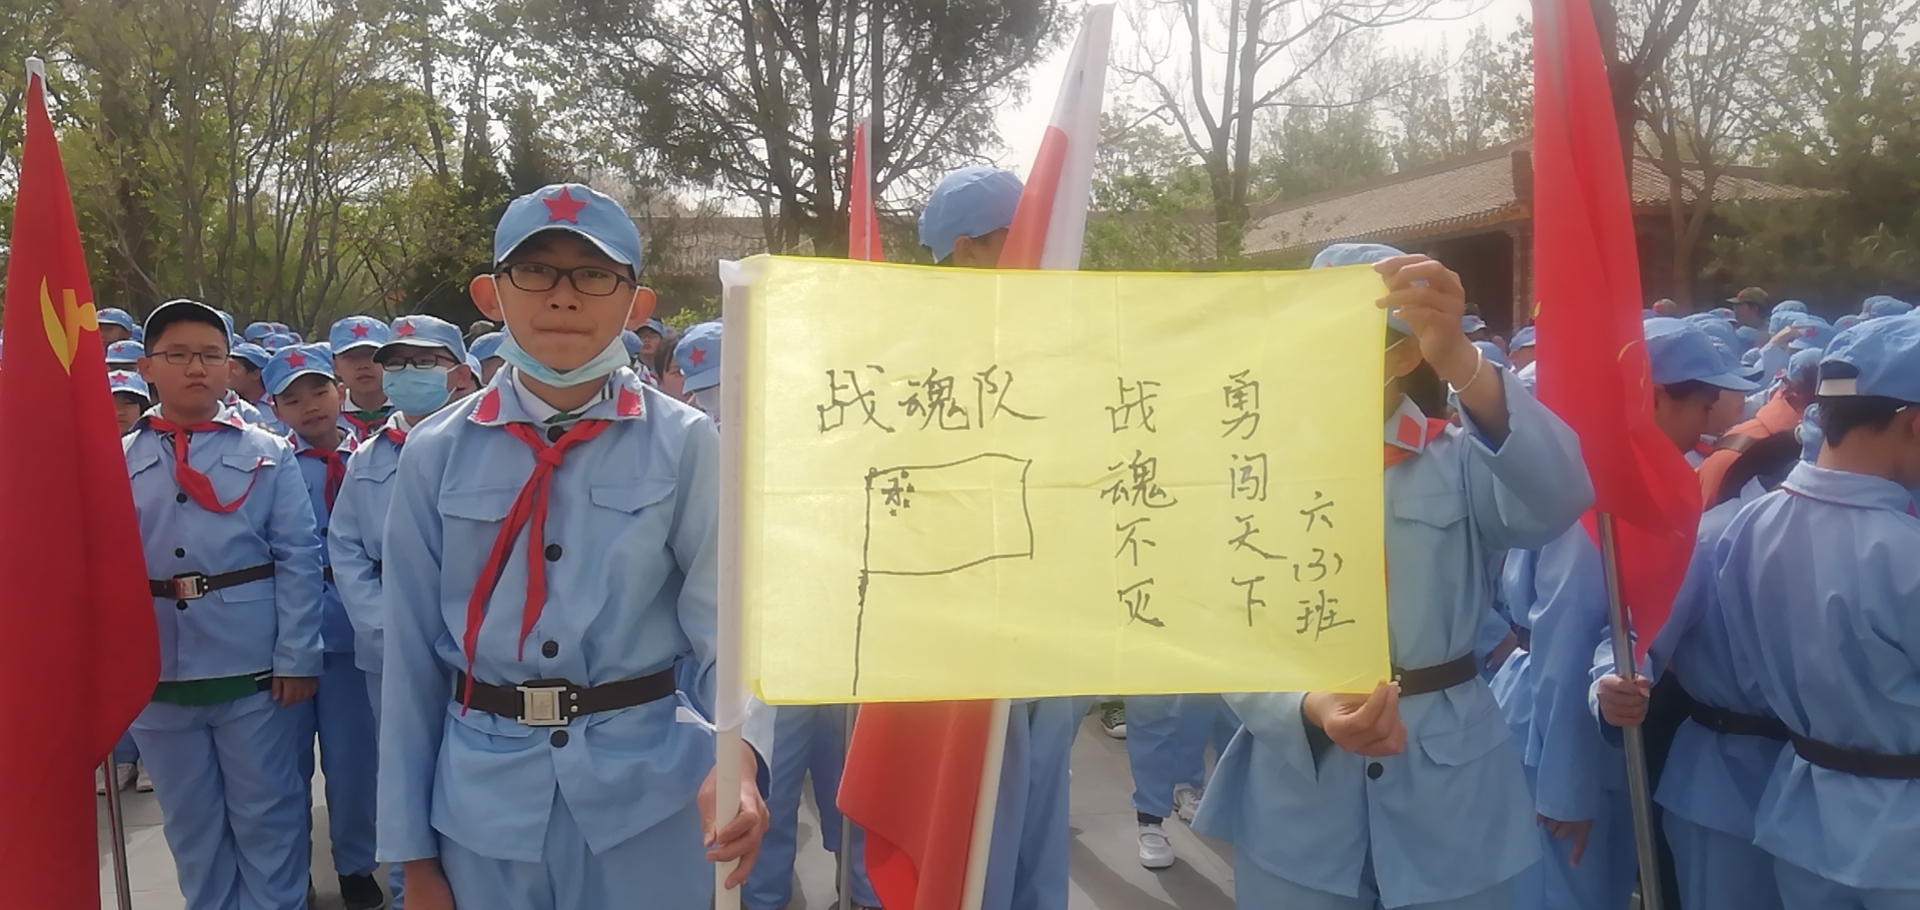 战魂队
战魂不灭
勇闯天下
六(3)班